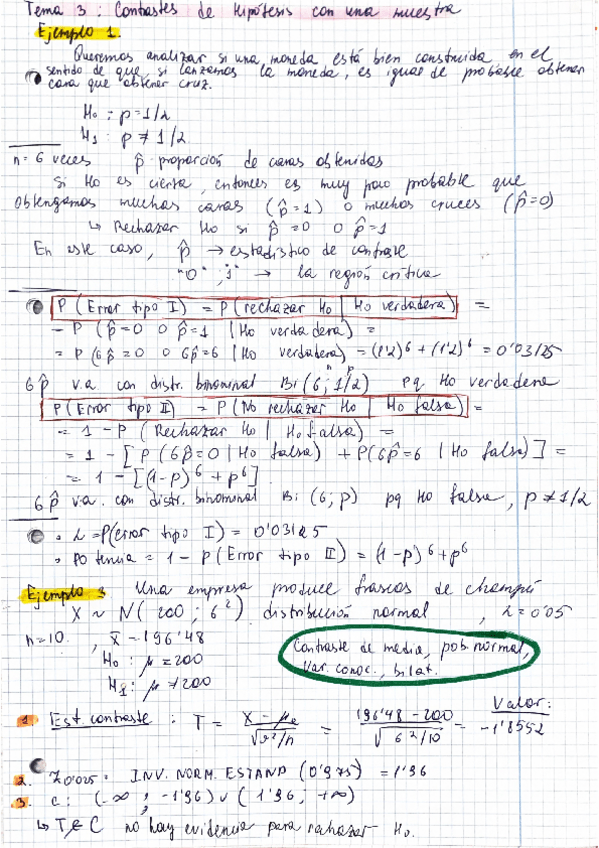 Tema 3 : Contrastes de Hipótesis con una muestra
Ejemplo 1.
Queremos analizar si una moneda está bien construida en el
sentido de que, si lanzamos la moneda, es igual de probable obtener
cara que obtener cruz.
H₀ : p = 1/2
H₁ : p ≠ 1/2
n = 6 veces p̂ proporción de caras obtenidas
Si H₀ es cierta, entonces es muy poco probable que
obtengamos muchas caras (p̂ = 1) o muchos cruces (p̂ = 0)
↳ Rechazar H₀ si p̂ = 0 o p̂ = 1
En este caso, p̂ → estadístico de contraste
"0", "1" → la región crítica
P (Error tipo I) = P (rechazar H₀ | H₀ verdadera) =
= P (p̂ = 0 o p̂ = 1 | H₀ verdadera) =
= P (6p̂ = 0 o 6p̂ = 6 | H₀ verdadera) = (1/2)⁶ + (1/2)⁶ = 0'03125
6p̂ v.a. con distr. binominal Bi (6; 1/2) pq H₀ verdadera
P (Error tipo II) = P (No rechazar H₀ | H₀ falsa) =
= 1 - P (Rechazar H₀ | H₀ falsa) =
= 1 - [P (6p̂ = 0 | H₀ falsa) + P (6p̂ = 6 | H₀ falsa)] =
= 1 - [(1-p)⁶ + p⁶]
6p̂ v.a. con distr. binominal Bi (6; p) pq H₀ falsa, p ≠ 1/2
• α = P(error tipo I) = 0'03125
• Potencia = 1 - P (Error tipo II) = (1-p)⁶ + p⁶
Ejemplo 3 Una empresa produce frascos de champú
X ~ N (200; 6²) distribución normal, α = 0'05
n = 10, x̄ = 196'48
H₀ : μ = 200
H₁ : μ ≠ 200
Contraste de media, pob. normal,
Var. conoc., bilat.
1. Est. contraste : T = (X̄ - μ₀)/√(σ²/n) = (196'48 - 200)/√(6²/10) = Valor: -1'8552
2. Z0'025 = INV. NORM. ESTAND (0'975) = 1'96
3. C: (-∞, -1'96) ∪ (1'96; +∞)
↳ T ∉ C no hay evidencia para rechazar H₀.